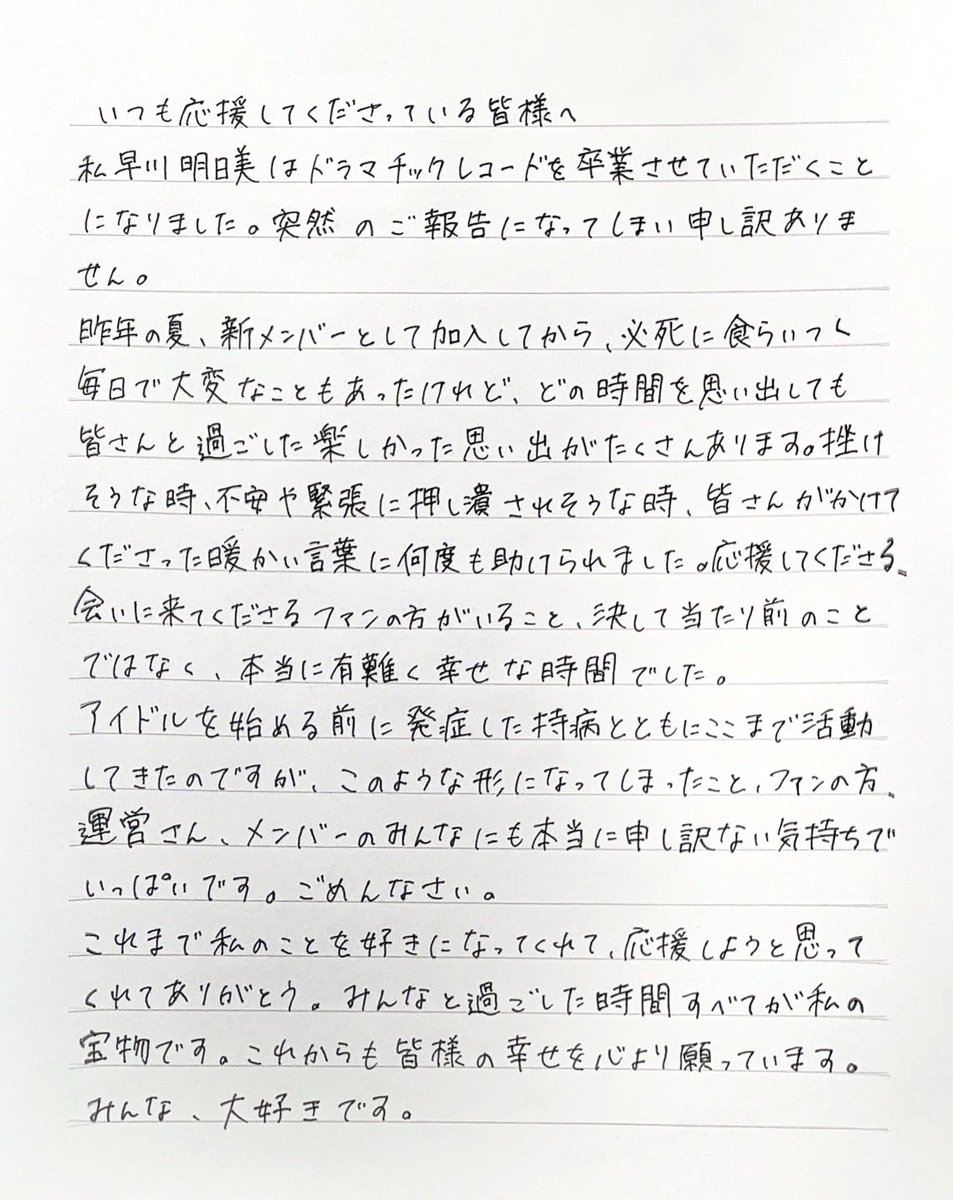 いつも応援してくださっている皆様へ
私早川明日美はドラマチックレコードを卒業させていただくこと
になりました。突然のご報告になってしまい申し訳ありま
せん。
昨年の夏、新メンバーとして加入してから、必死に食らいつく
毎日で大変なこともあったけれど、どの時間を思い出しても
皆さんと過ごした楽しかった思い出がたくさんあります。挫け
そうな時、不安や緊張に押し潰されそうな時、皆さんがかけて
くださった暖かい言葉に何度も助けられました。応援してくださる、
会いに来てくださるファンの方がいること、決して当たり前のこと
ではなく、本当に有難く幸せな時間でした。
アイドルを始める前に発症した持病とともにここまで活動
してきたのですが、このような形になってしまったこと、ファンの方、
運営さん、メンバーのみんなにも本当に申し訳ない気持ちで
いっぱいです。ごめんなさい。
これまで私のことを好きになってくれて、応援しようと思って
くれてありがとう。みんなと過ごした時間すべてが私の
宝物です。これからも皆様の幸せを心より願っています。
みんな、大好きです。